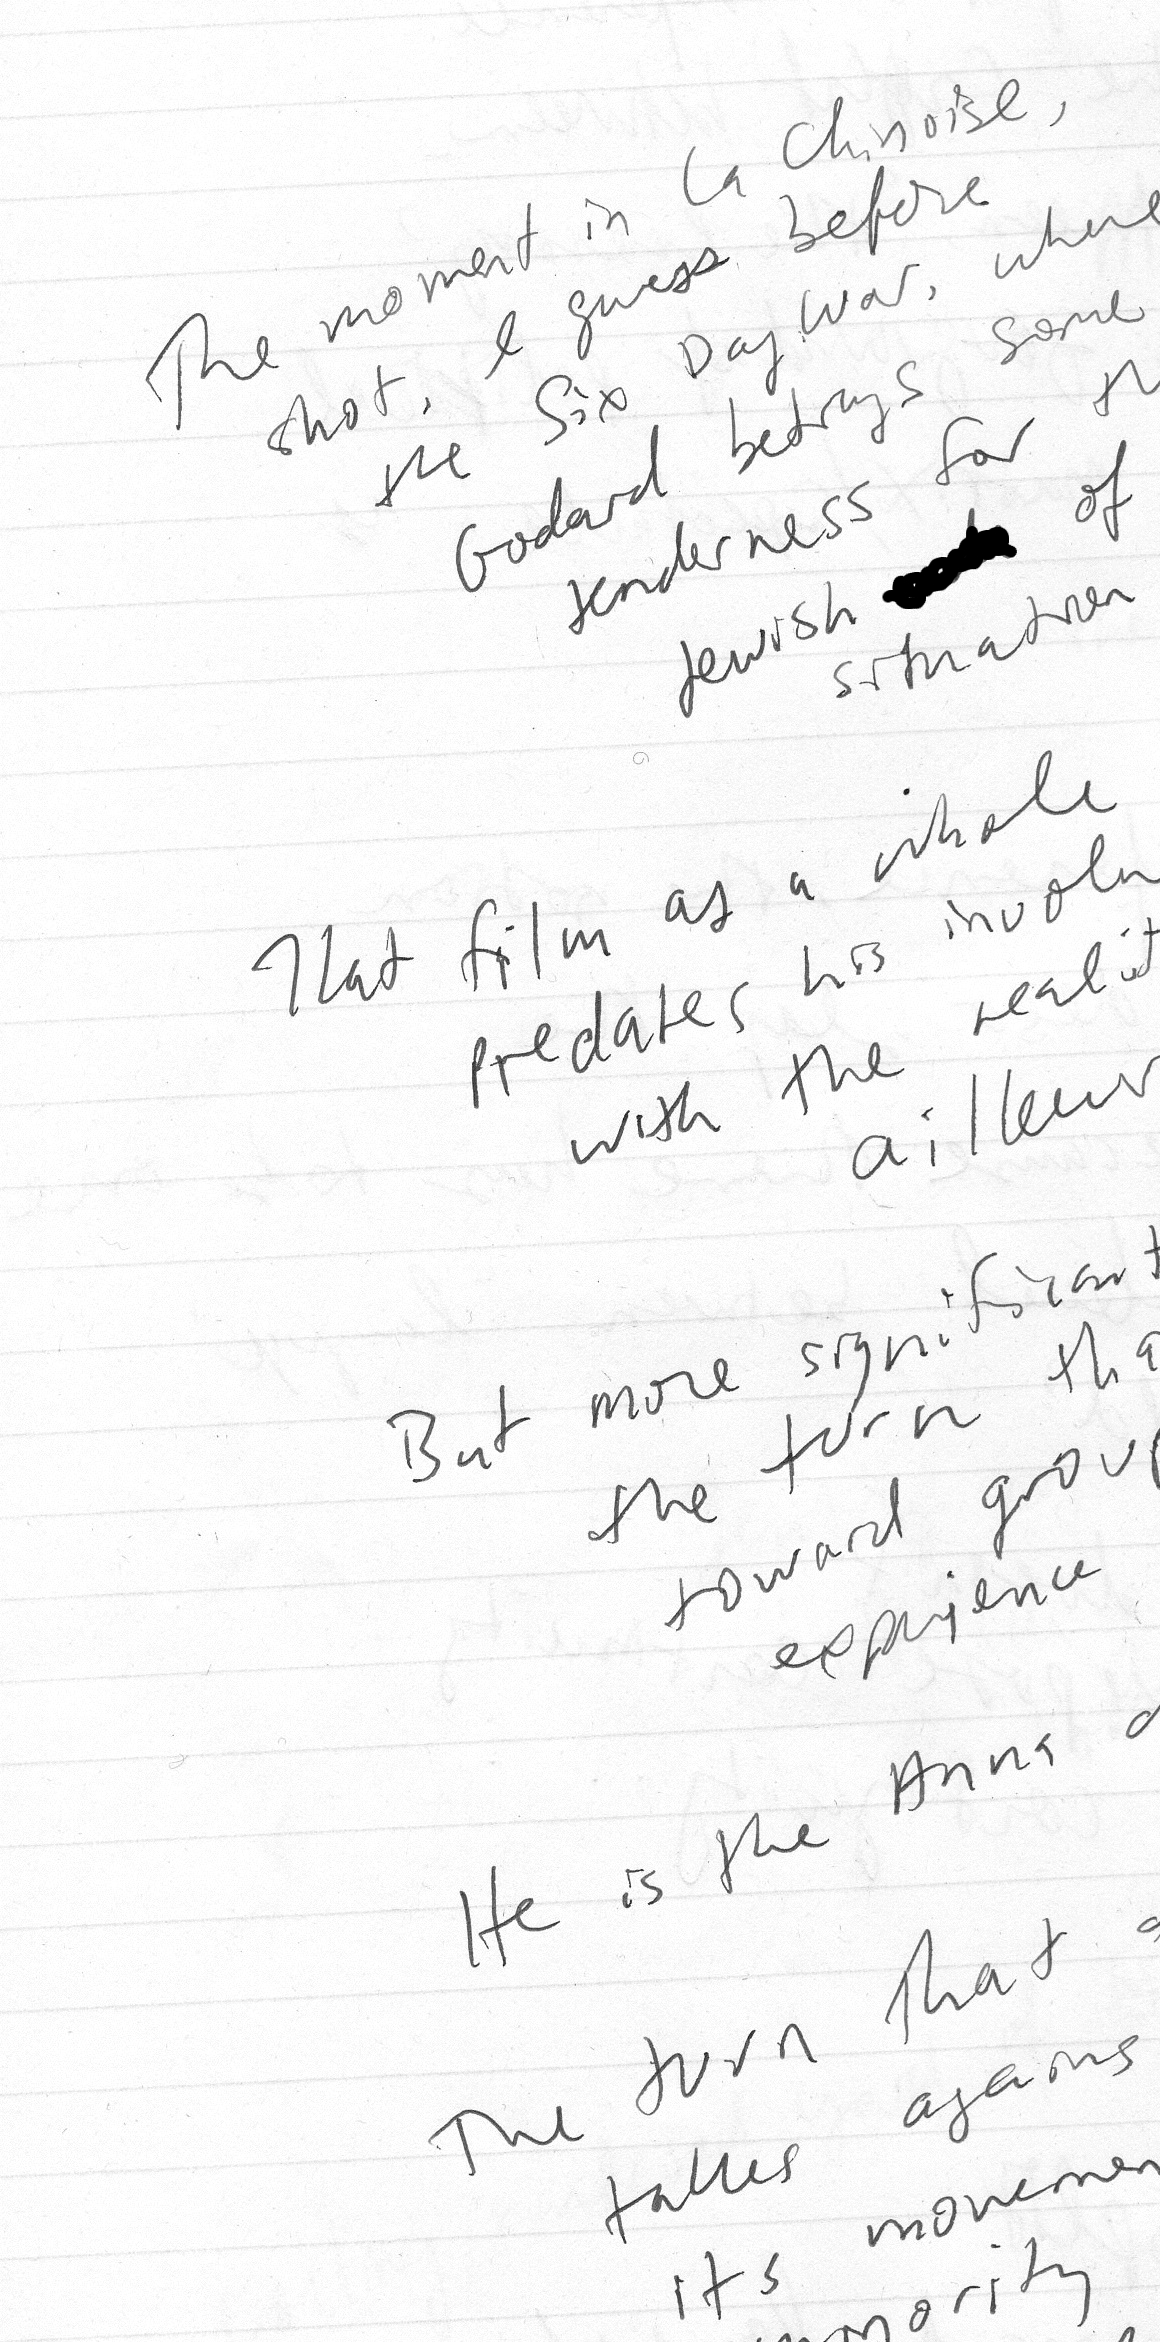 The moment in La Chinoise,
shot, I guess before
the Six Day War, where
Godard betrays some
tenderness for th
Jewish of
situation
That film as a whole
predates his involv
with the realit
ailleur
But more significant
the turn tha
toward group
experience
He is the
The turn that
takes agains
its movemen